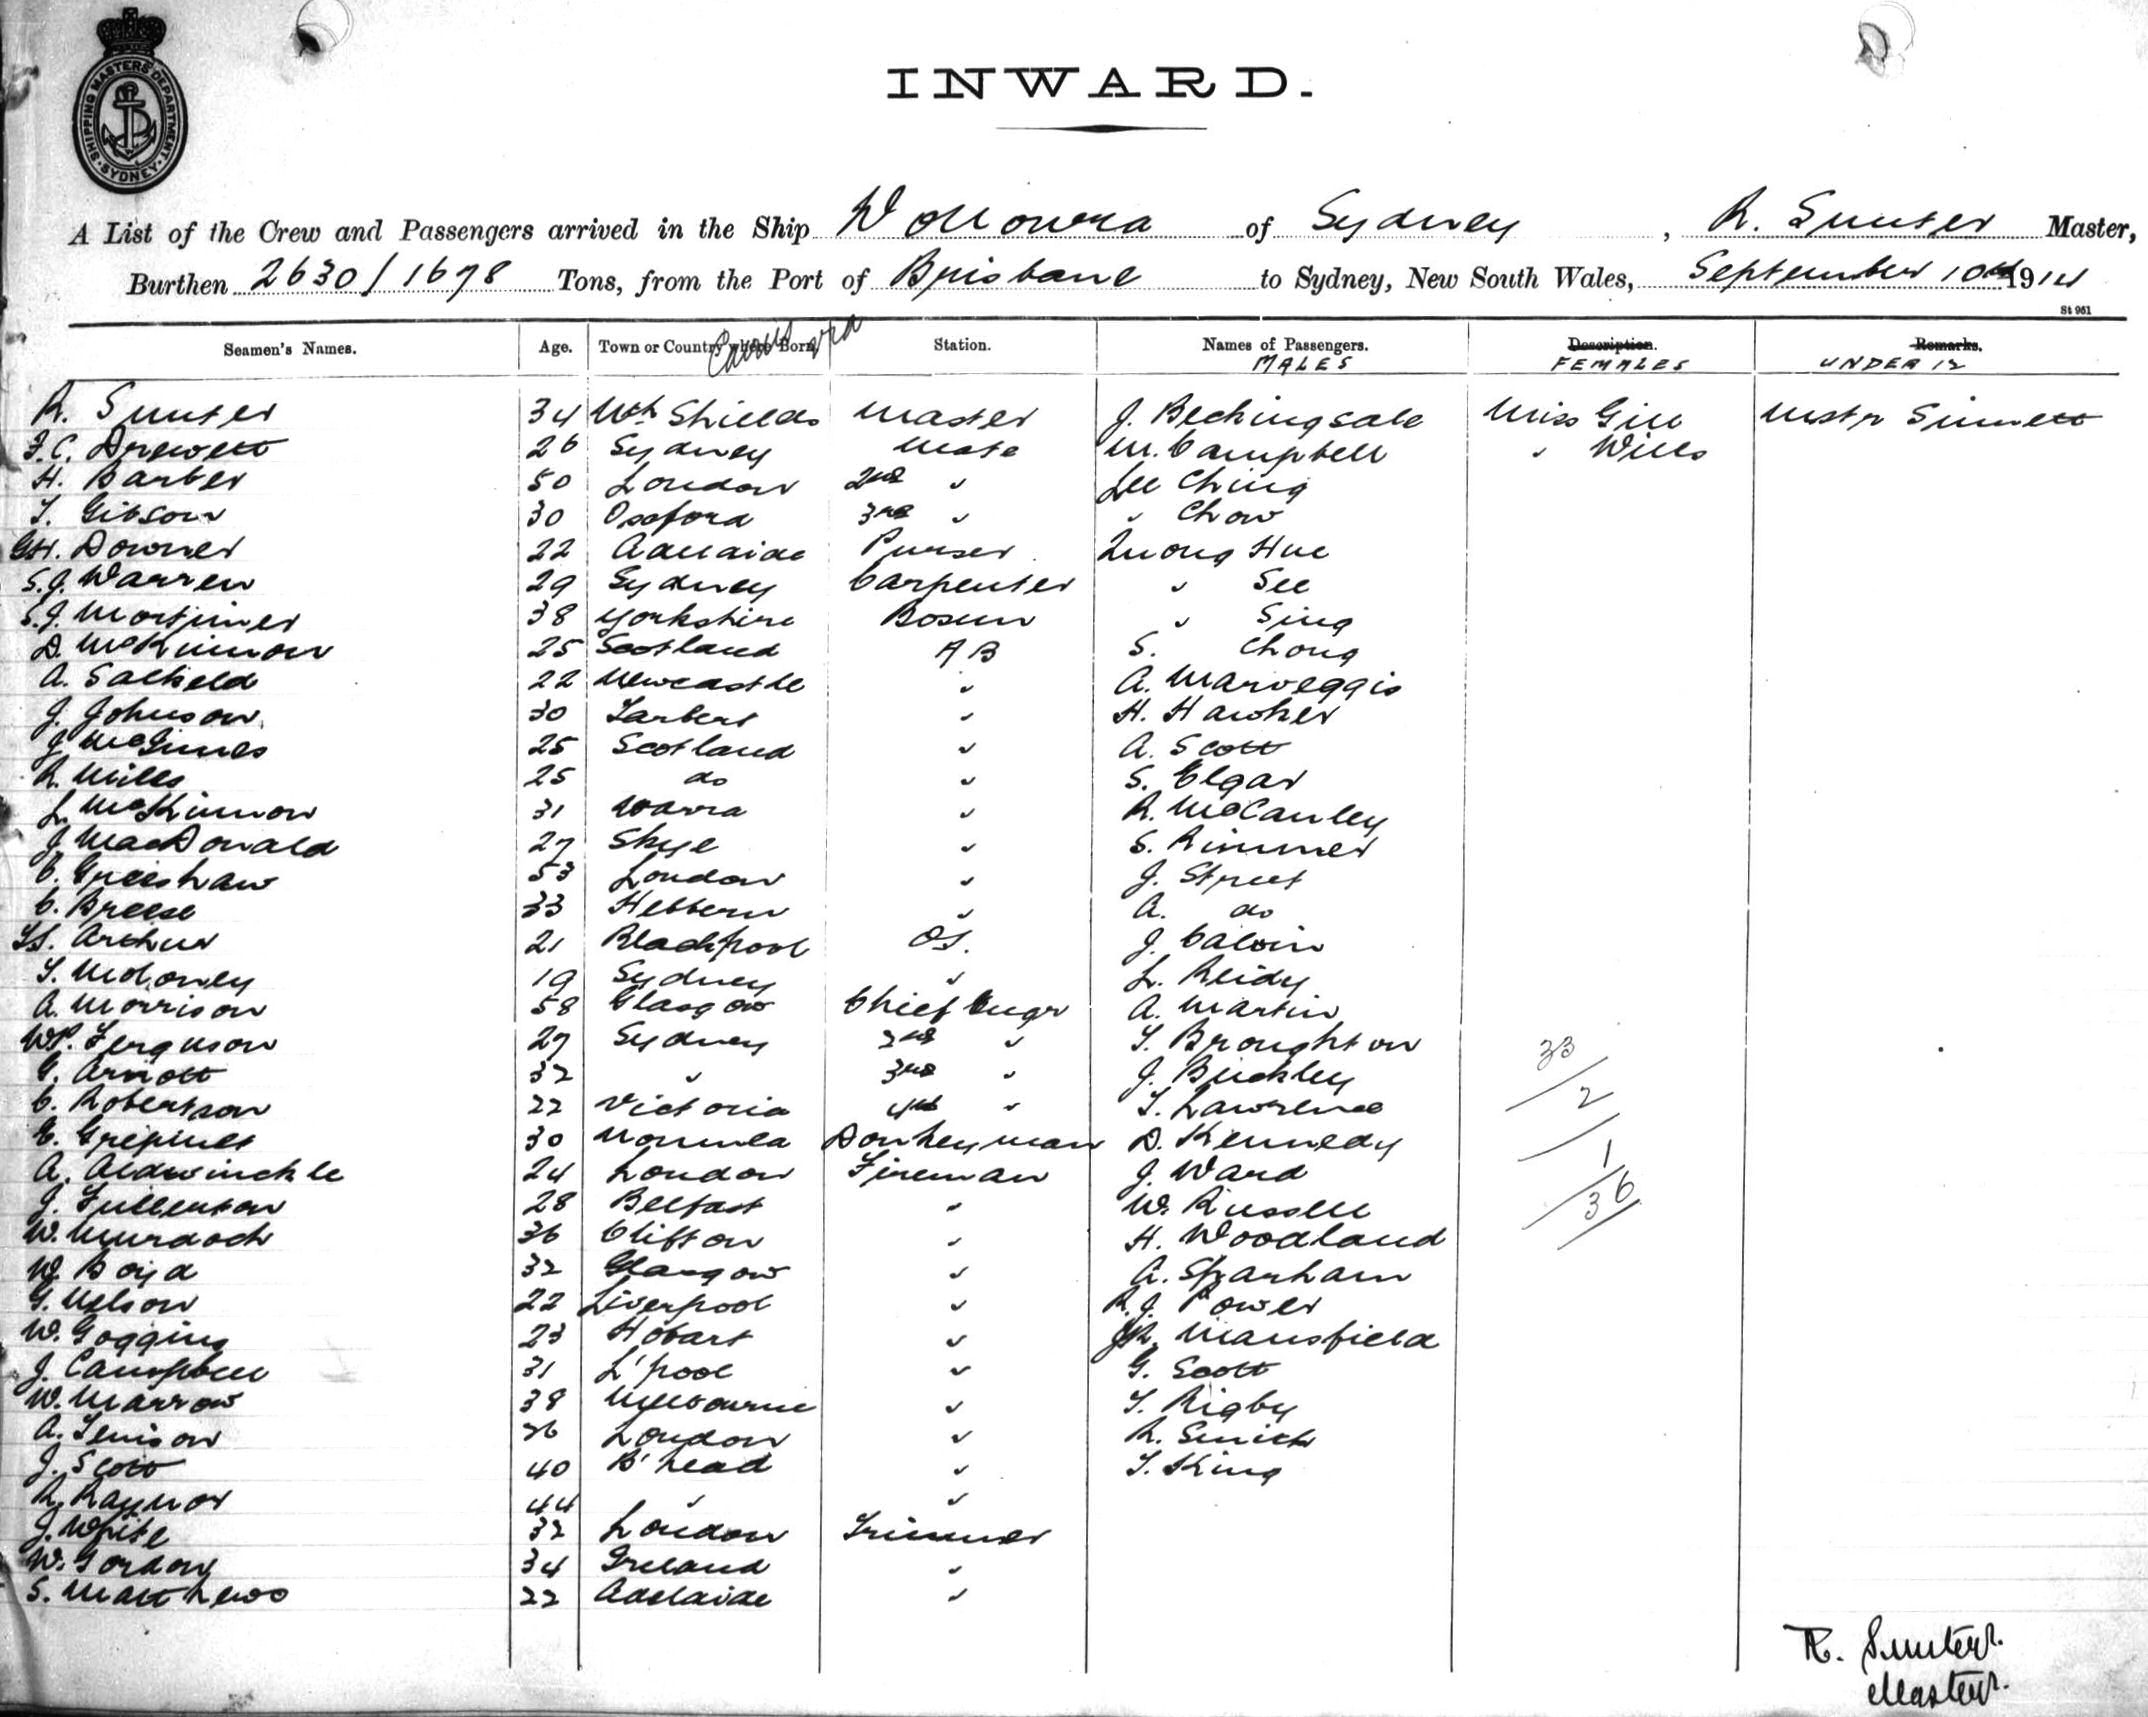 SHIPPING MASTERS DEPARTMENT · SYDNEY ·
INWARD.
A List of the Crew and Passengers arrived in the Ship Wollowra of Sydney, R. Sunter Master,
Burthen 2630/1678 Tons, from the Port of Brisbane to Sydney, New South Wales, September 10th 1914
St 951
Seamen's Names. Age. Town or Country where Born. Station. Names of Passengers. Description. Remarks.
MALES FEMALES UNDER 12
R. Sunter 34 Nth Shields Master J. Beckingsale Miss Gill Mstr Sinnett
F.C. Drewett 26 Sydney Mate M. Campbell " Wills
H. Barber 50 London 2nd " Lee Ching
T. Gibson 30 Oxford 3rd " " Chow
GH. Downer 22 Adelaide Purser Quong Hue
S.J. Warren 29 Sydney Carpenter " See
S.J. Mortimer 38 Yorkshire Bosun " Sing
D. McKinnon 25 Scotland AB S. Chong
A. Salkeld 22 Newcastle " A. Marveggis
J. Johnson 30 Tarbert " H. Hawker
J McGinnes 25 Scotland " A. Scott
R. Mills 25 do " S. Elgar
L. McKinnon 31 " R. McCauley
J MacDonald 27 Skye " S. Rimmer
C. Greeshaw 53 London " J. Street
C. Breese 33 Hebburn " A. do
Arthur 21 Blackpool OS. J. Calvin
T. Moloney 19 Sydney " L. Reidy
A. Morrison 58 Glasgow Chief Engr A. Martin
WP. Ferguson 27 Sydney 2nd " T. Broughton 33
G. Arnott 32 " 3rd " J. Buckley 2
C. Robertson 22 Victoria 4th " T. Lawrence
30 Donkeyman D. Kennedy 1
A. Aldwinckle 24 London Fireman J. Ward 36
J. Fullerton 28 Belfast " W. Russell
W. Murdoch 36 Clifton " H. Woodland
W. Boyd 32 Glasgow " A. Sparham
G. Nelson 22 Liverpool " R.J. Power
W. Goggins 23 Hobart " Mansfield
J. Campbell 31 L'pool " G. Scott
W. Marrow 38 Melbourne " T. Rigby
A. Tenison 36 London " R. Smith
J. Scott 40 B'head " T. King
R. Raynor 44 " "
J. White 32 London Trimmer
W. Gordon 34 Ireland "
S. Matthews 22 Adelaide "
R. Sunter.
Master.